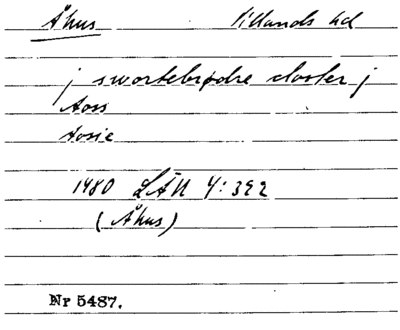 Åhus Villands hd
j swortebrødre closter j
Aoss
Aosie
1480 LÄU 4:392
(Åhus)
Nr 5487.